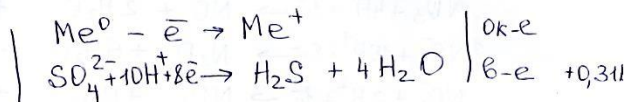 Me⁰ - ē → Me⁺ | ок-е
SO₄²⁻ + 10H⁺ + 8ē → H₂S + 4H₂O | в-е +0,31